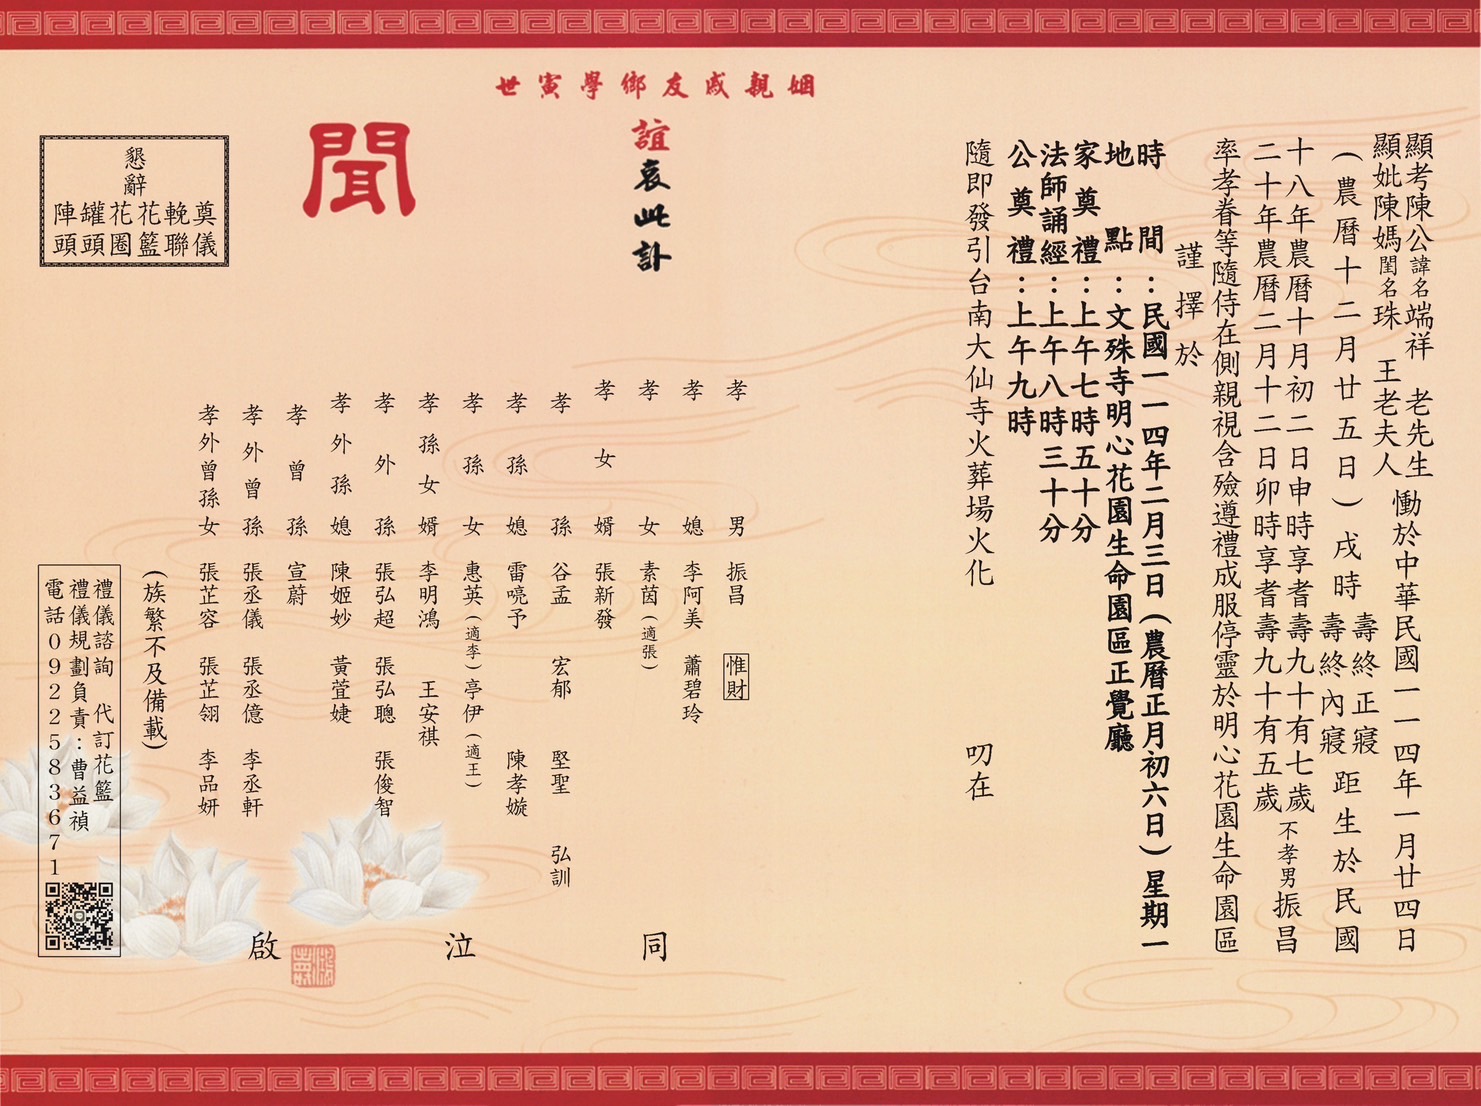 顯考陳公諱名端祥　老先生
顯妣陳媽閨名珠　王老夫人
慟於中華民國一一四年一月廿四日
（農曆十二月廿五日）戌時
壽終正寢
壽終內寢
距生於民國
十八年農曆十月初二日申時享耆壽九十有七歲
二十年農曆二月十二日卯時享耆壽九十有五歲
不孝男振昌
率孝眷等隨侍在側親視含殮遵禮成服停靈於明心花園生命園區
謹擇於
時間：民國一一四年二月三日（農曆正月初六日）星期一
地點：文殊寺明心花園生命園區正覺廳
家奠禮：上午七時五十分
法師誦經：上午八時三十分
公奠禮：上午九時
隨即發引台南大仙寺火葬場火化
叨在
姻親戚友鄉學寅世
誼哀此訃
聞
孝男　振昌　惟財
孝媳　李阿美　蕭碧玲
孝女　素茵（適張）
孝女婿　張新發
孝孫　谷孟　宏郁　堅聖　弘訓
孝孫媳　雷喨予　陳孝媗
孝孫女　惠英（適李）亭伊（適王）
孝孫女婿　李明鴻　王安祺
孝外孫　張弘超　張弘聰　張俊智
孝外孫媳　陳姬妙　黃萱婕
孝曾孫　宣蔚
孝外曾孫　張丞儀　張丞億　李丞軒
孝外曾孫女　張芷容　張芷翎　李品妍
同泣啟
（族繁不及備載）
懇辭
奠儀
輓聯
花籃
花圈
罐頭
陣頭
禮儀諮詢　代訂花籃
禮儀規劃負責：曹益禎
電話0922583671